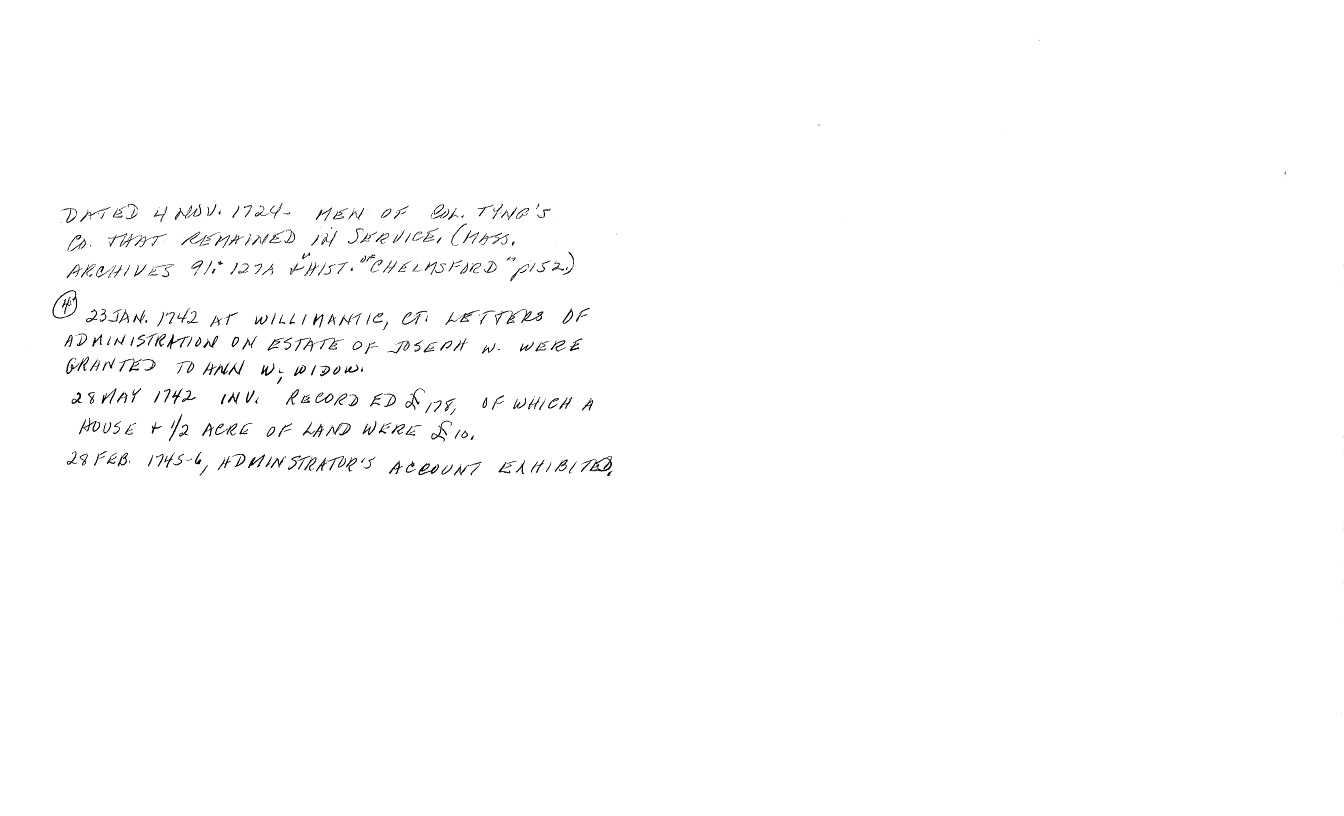 DATED 4 NOV. 1724- MEN OF COL. TYNG'S
CO. THAT REMAINED IN SERVICE. (MASS.
ARCHIVES 91:127A + "HIST. OF CHELMSFORD" p152.)
4 23 JAN. 1742 AT WILLIMANTIC, CT. LETTERS OF
ADMINISTRATION ON ESTATE OF JOSEPH W. WERE
GRANTED TO ANN W; WIDOW.
28 MAY 1742 INV. RECORDED £178, OF WHICH A
HOUSE + 1/2 ACRE OF LAND WERE £10.
28 FEB. 1745-6, ADMINSTRATOR'S ACCOUNT EXHIBITED.